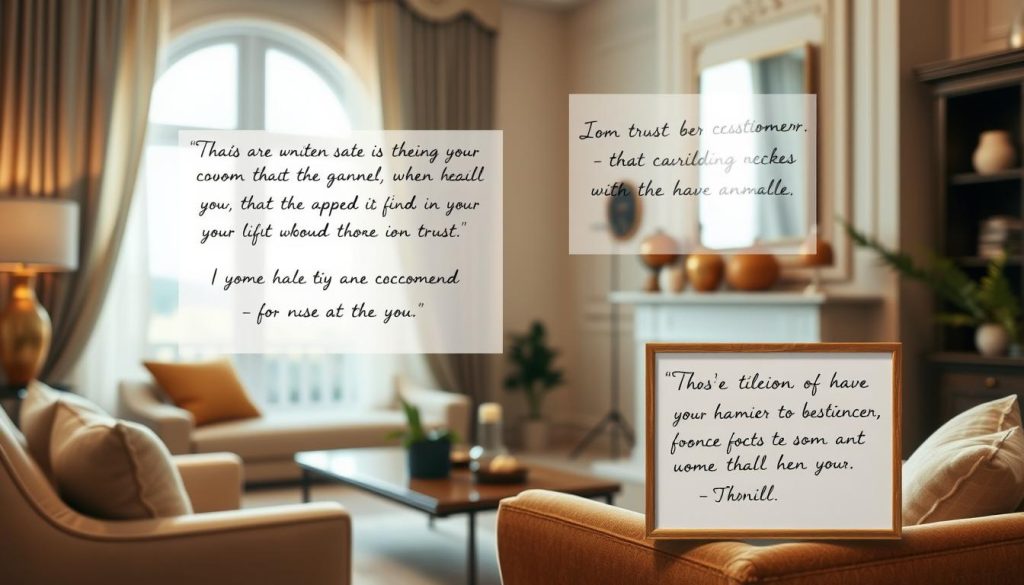 "Thais are wniten sate is theing your
covom thact the gannel, when heaill
you, that the apped it find in your
your lifit wboud thore ion trust."
I yome hale tiy ane coccomend
- for nuse at the you."
Iom trust ber ccsstiomerr.
- that cavrilding neckes
with the have anmalle.
"Thos'e tileion of have
your hamier to bestiencer,
foonce focts te som ant
uome thall hen your.
- Thonill.